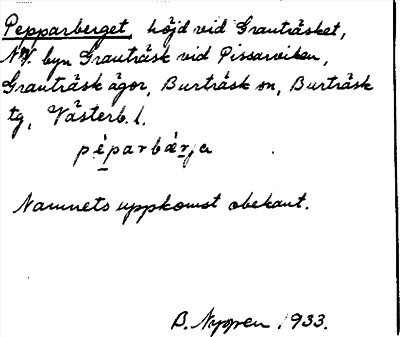 Pepparberget, höjd vid Grauträsket,
NV. byn Grauträsk vid Pissarviken,
Grauträsk ägor, Burträsk sn, Burträsk
tg, Västerb. l.
pèparbærja
Namnets uppkomst obekant.
B. Nygren 1933.